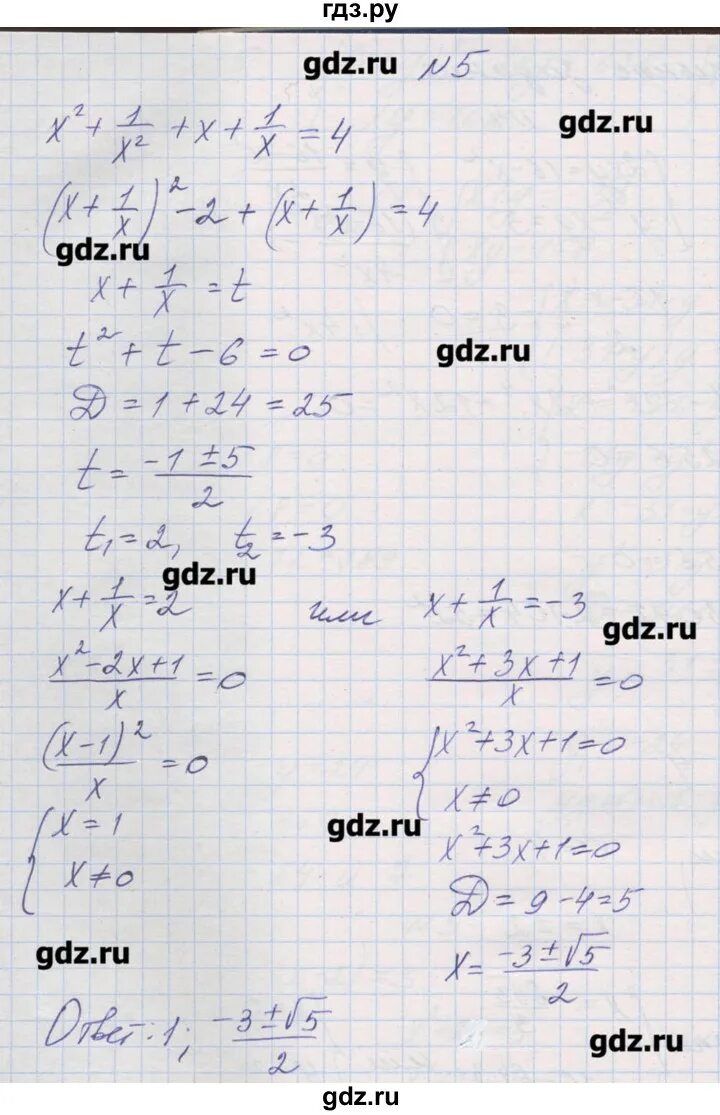 гдз.ру
gdz.ru №5
x² + 1/x² + x + 1/x = 4
gdz.ru
(x + 1/x)² - 2 + (x + 1/x) = 4
gdz.ru
x + 1/x = t
t² + t - 6 = 0
gdz.ru
Д = 1 + 24 = 25
t = (-1 ± 5)/2
t₁ = 2, t₂ = -3
gdz.ru
x + 1/x = 2 или x + 1/x = -3
gdz.ru
(x² - 2x + 1)/x = 0 (x² + 3x + 1)/x = 0
(x - 1)²/x = 0 { x² + 3x + 1 = 0
x ≠ 0
{ x = 1
gdz.ru
x² + 3x + 1 = 0
x ≠ 0
Д = 9 - 4 = 5
gdz.ru
x = (-3 ± √5)/2
Ответ: 1; (-3 ± √5)/2
gdz.ru
gdz.ru